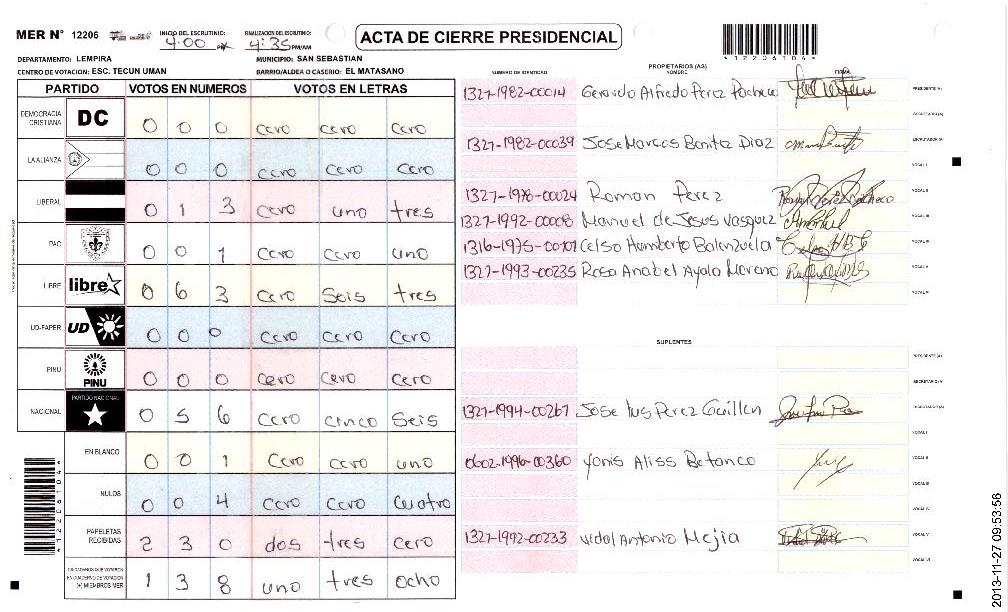 MER N° 12206 INICIO DEL ESCRUTINIO: 4:00 PM FINALIZACION DEL ESCRUTINIO: 4:35 PM/AM
ACTA DE CIERRE PRESIDENCIAL
*12206104*
DEPARTAMENTO: LEMPIRA MUNICIPIO: SAN SEBASTIAN
CENTRO DE VOTACION: ESC. TECUN UMAN BARRIO/ALDEA O CASERIO: EL MATASANO
PARTIDO VOTOS EN NUMEROS VOTOS EN LETRAS
DEMOCRACIA CRISTIANA DC 0 0 0 cero cero cero
LA ALIANZA 0 0 0 cero cero cero
LIBERAL 0 1 3 cero uno tres
PAC 0 0 1 cero cero uno
LIBRE libre 0 6 3 cero Seis tres
UD-FAPER UD 0 0 0 cero cero cero
PINU PINU 0 0 0 cero cero cero
NACIONAL PARTIDO NACIONAL 0 5 6 cero cinco Seis
EN BLANCO 0 0 1 cero cero uno
NULOS 0 0 4 cero cero cuatro
PAPELETAS RECIBIDAS 2 3 0 dos tres cero
CIUDADANOS QUE VOTARON EN CUADERNO DE VOTACION (+) MIEMBROS MER 1 3 8 uno tres ocho
*12206104*
PROPIETARIOS (AS)
NUMERO DE IDENTIDAD NOMBRE FIRMA
1327-1982-00014 Gerardo Alfredo Perez Pacheco PRESIDENTE (A)
SECRETARIO (A)
1327-1982-00039 Jose Marcos Benitez Diaz ESCRUTADOR (A)
VOCAL I
1327-1978-00024 Roman Perez VOCAL II
1327-1992-00008 Manuel de Jesus Vasquez VOCAL III
1316-1975-00101 Celso Humberto Balenzuela VOCAL IV
1327-1993-00235 Rosa Anabel Ayala Moreno VOCAL V
VOCAL VI
SUPLENTES
PRESIDENTE (A)
SECRETARIO (A)
1327-1994-00267 Jose luis Perez Guillen ESCRUTADOR (A)
VOCAL I
0602-1996-00360 Yonis Aliss Betanco VOCAL II
VOCAL III
VOCAL IV
1327-1992-00233 Vidal Antonio Mejia VOCAL V
VOCAL VI
2013-11-27 09:53:56